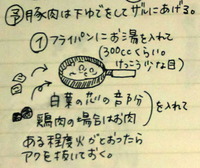 予 豚肉は下ゆでをしてザルにあげる。
① フライパンにお湯を入れて
(300ccくらい。
けっこう少な目)
白菜の芯の部分
鶏肉の場合はお肉
を入れて
ある程度火がとおったら
アクを抜いておく。